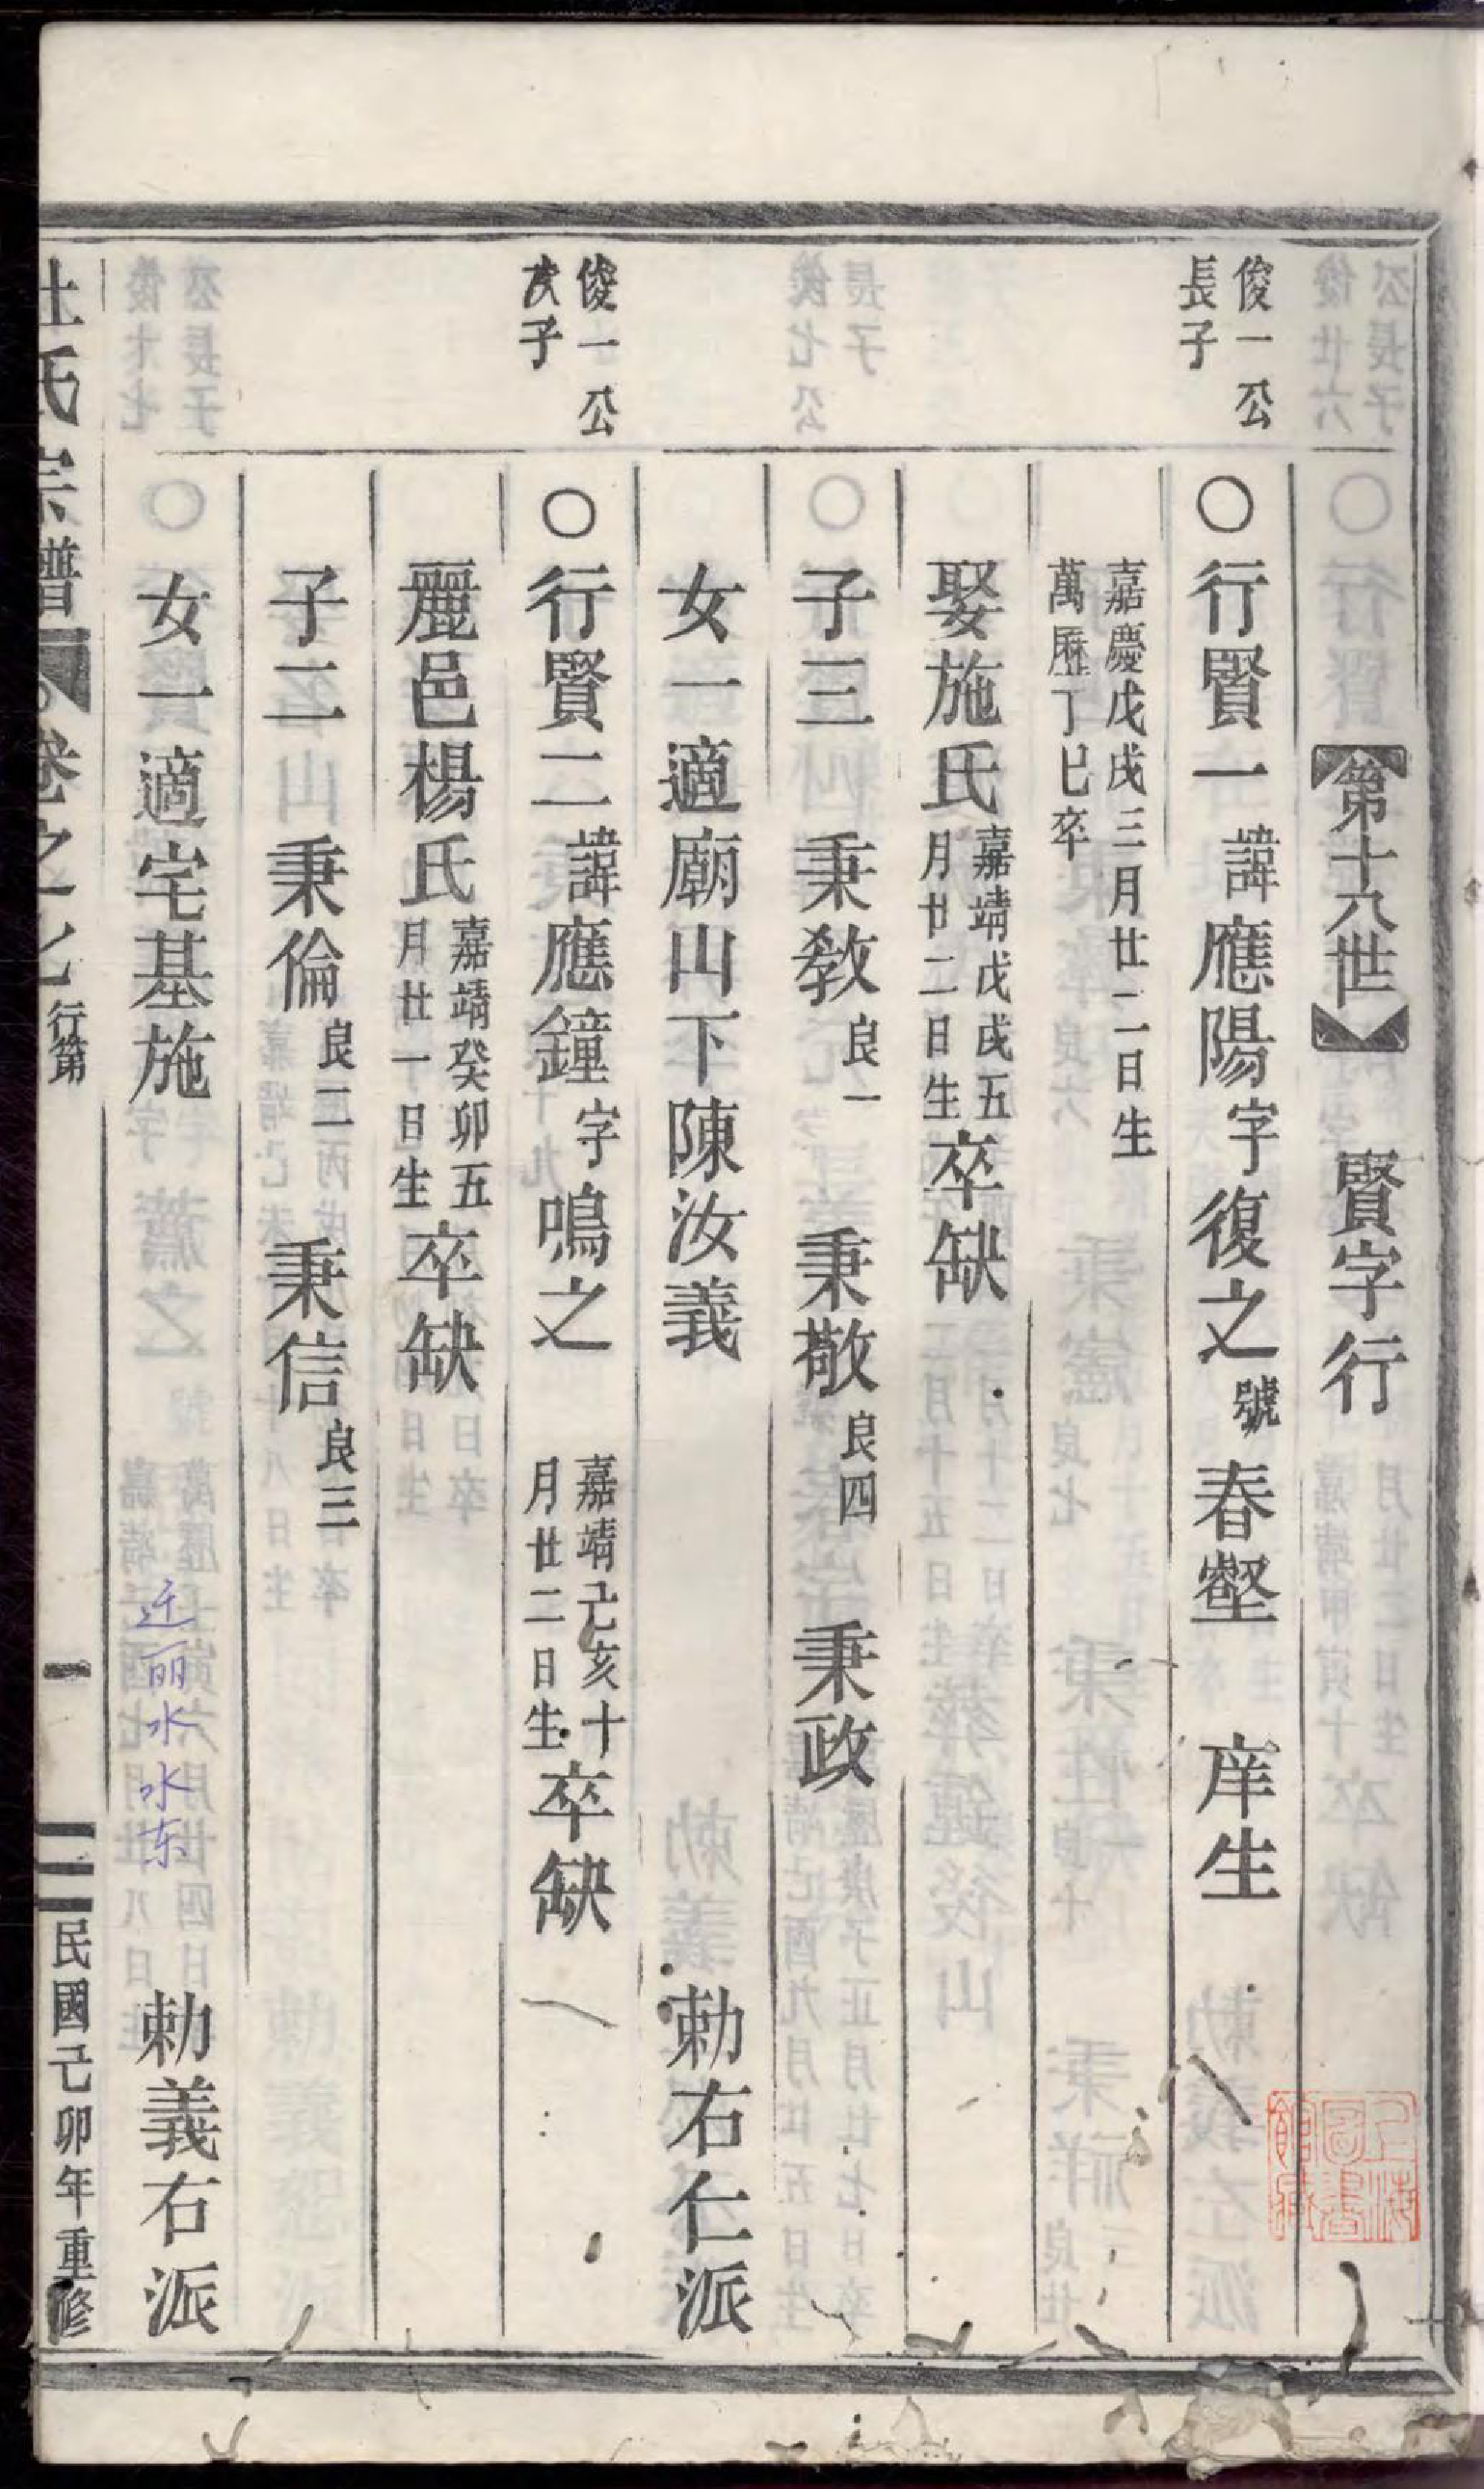 第十八世 賢字行
俊一公
長子
○行賢一諱應陽字復之號春壑 庠生
嘉慶戊戌三月廿二日生
萬曆丁巳卒
娶施氏嘉靖戊戌五月廿二日生卒缺
子三 秉敎良一 秉敬良四 秉政
女一適廟山下陳汝義 勅右仁派
俊一公
次子
○行賢二諱應鐘字鳴之 嘉靖己亥十月廿二日生卒缺
麗邑楊氏嘉靖癸卯五月廿一日生卒缺
子二 秉倫良二 秉信良三
女一適宅基施 勅義右派
迁丽水水东
杜氏宗譜 卷之七 行第 一 民國己卯年重修
上海
圖書
館藏